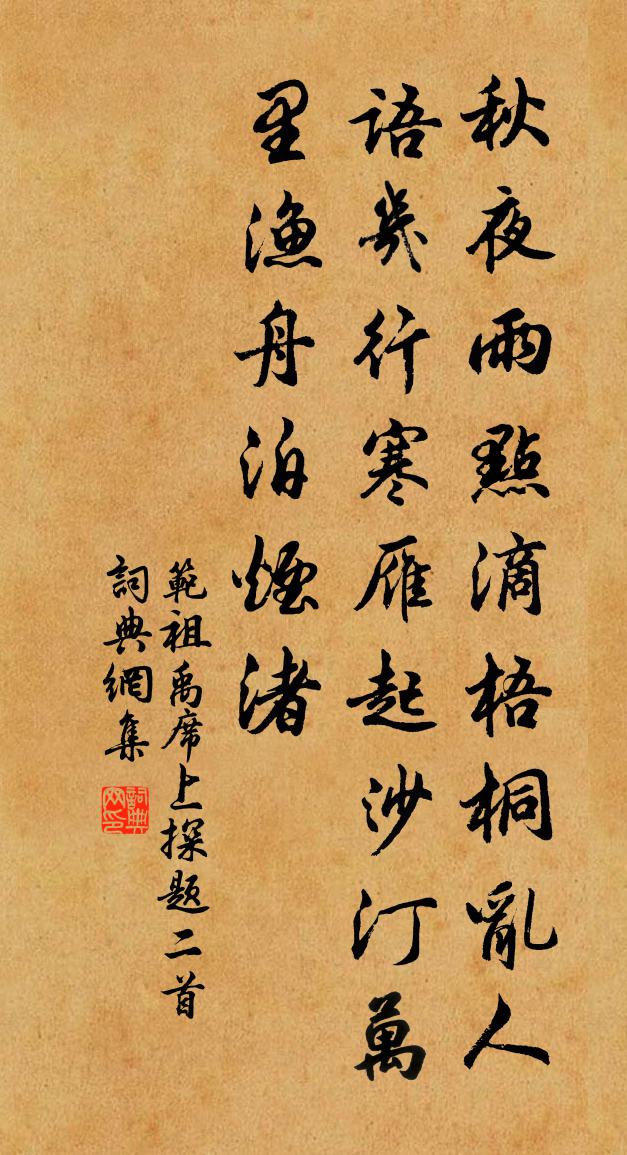 秋夜雨點滴梧桐亂人
語幾行寒雁起沙汀萬
里漁舟泊煙渚
範祖禹席上探题二首
詞典網集
詞典网印